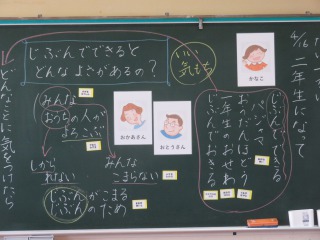 4/16 二年生になって
じぶんでできると
どんなよさがあるの？
いい
気もち
かなこ
じぶんでできる
パジャマ
おふとんほどう
一年生のおせわ
じぶんでおきる
みんな
おうちの人が
よろこぶ
おかあさん
おとうさん
しから
れない
みんな
こまらない
じぶんがこまる
じぶんのため
どんなことに気をつけたら